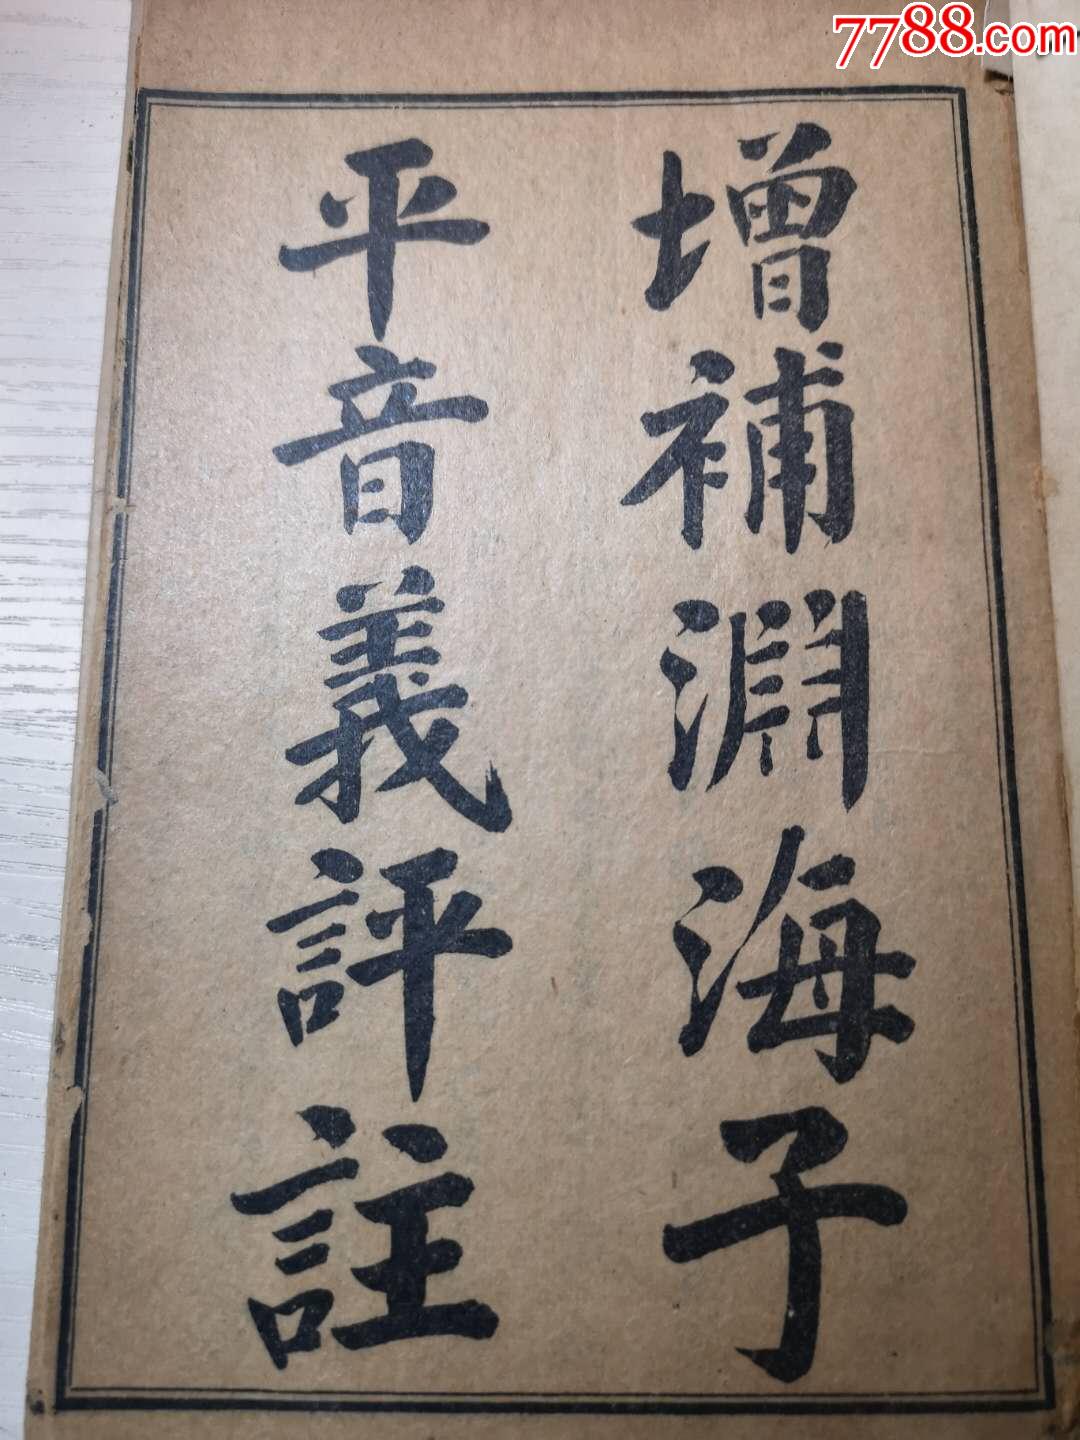 7788.com
增補淵海子
平音義評註